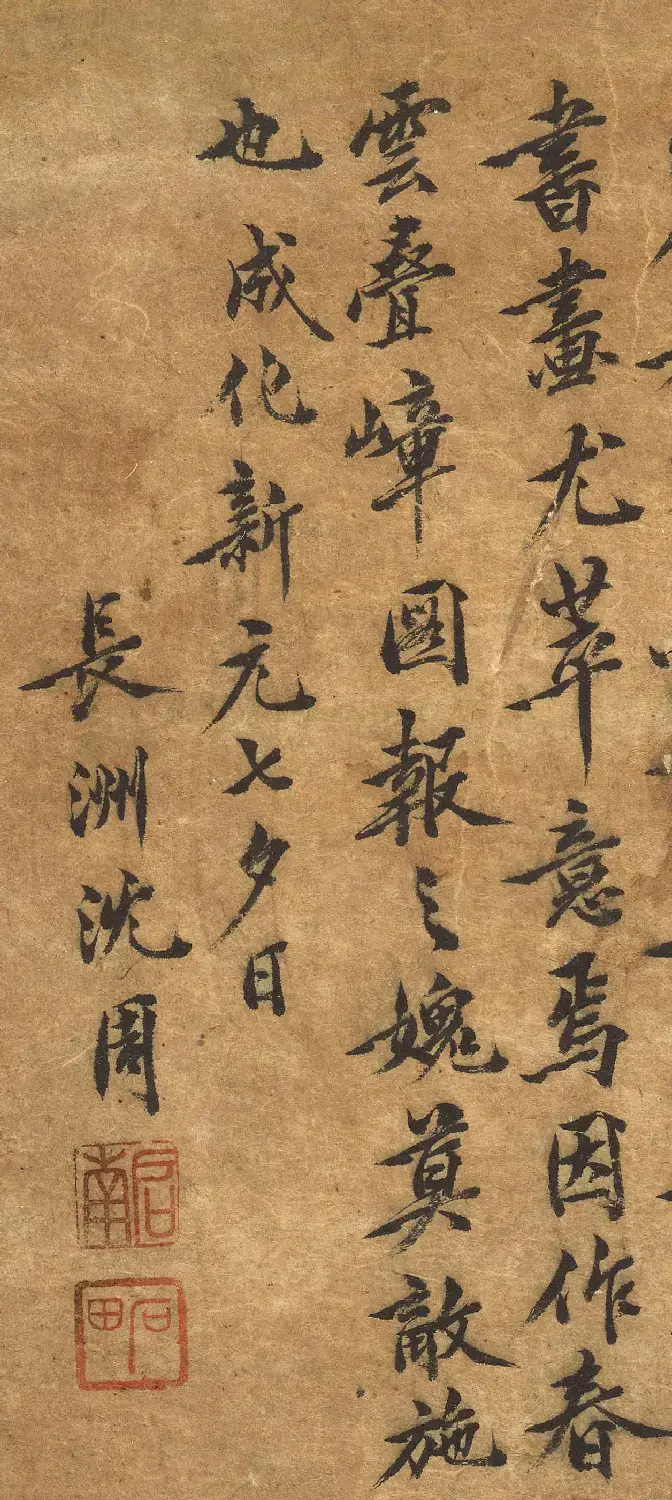 書畫尤萃意焉因作春
雲疊嶂圖報之媿莫敵施
也成化新元七夕日
長洲沈周
啟南
石田